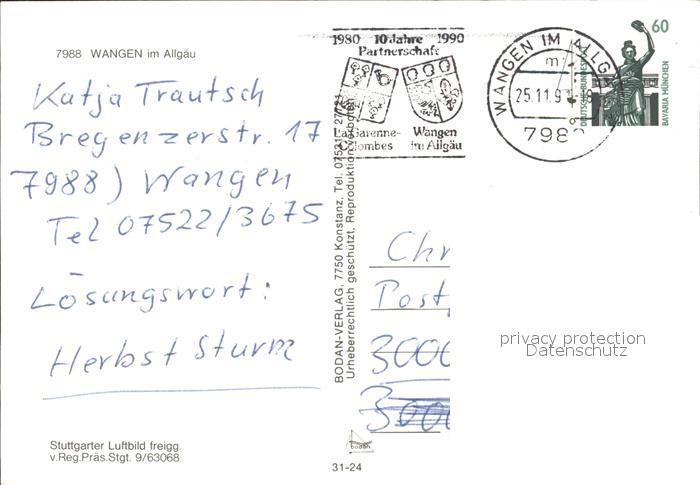 7988 WANGEN im Allgäu
Katja Trautsch
Bregenzerstr. 17
7988) Wangen
Tel 07522/3675
Lösungswort:
Herbst Sturm
Stuttgarter Luftbild freigg.
v.Reg.Präs.Stgt. 9/63068
1980 10 Jahre 1990
Partnerschaft
La Garenne-
Colombes
Wangen
im Allgäu
WANGEN IM ALLG
25.11.91
798
60
DEUTSCHE BUNDESPOST
BAVARIA MÜNCHEN
BODAN-VERLAG, 7750 Konstanz, Tel. 07531
Urheberrechtlich geschützt, Reproduktion
Chr
Post
3000
3000
privacy protection
Datenschutz
bodan
31-24